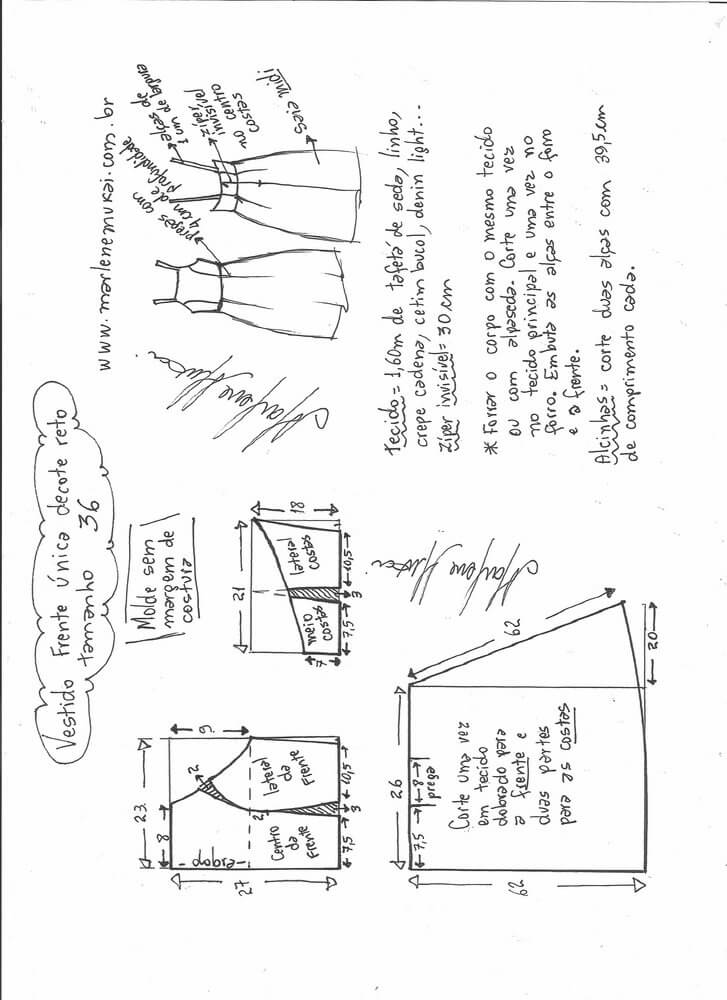 Vestido frente única decote reto
tamanho 36
www.marlenemukai.com.br
Molde sem
margem de
costura
23
8
9
2
27
-dobra-
2
Centro
da
frente
lateral
da
frente
7,5
3
10,5
21
18
7
meio
costas
lateral
costas
7,5
3
10,5
pregas com
4 cm de
profundidade
alças de
1 cm de largura
zíper
invisível
no centro
costas
saia midi
26
7,5
8
prega
62
62
20
Corte uma vez
em tecido
dobrado para
a frente e
duas partes
para as costas
Tecido = 1,60m de tafetá de seda, linho,
crepe cadena, cetim bucol, denin light...
Zíper invisível = 30 cm
* Forrar o corpo com o mesmo tecido
ou com alpaseda. Corte uma vez
no tecido principal e uma vez no
forro. Embuta as alças entre o forro
e a frente.
Alcinhas = corte duas alças com 39,5 cm
de comprimento cada.